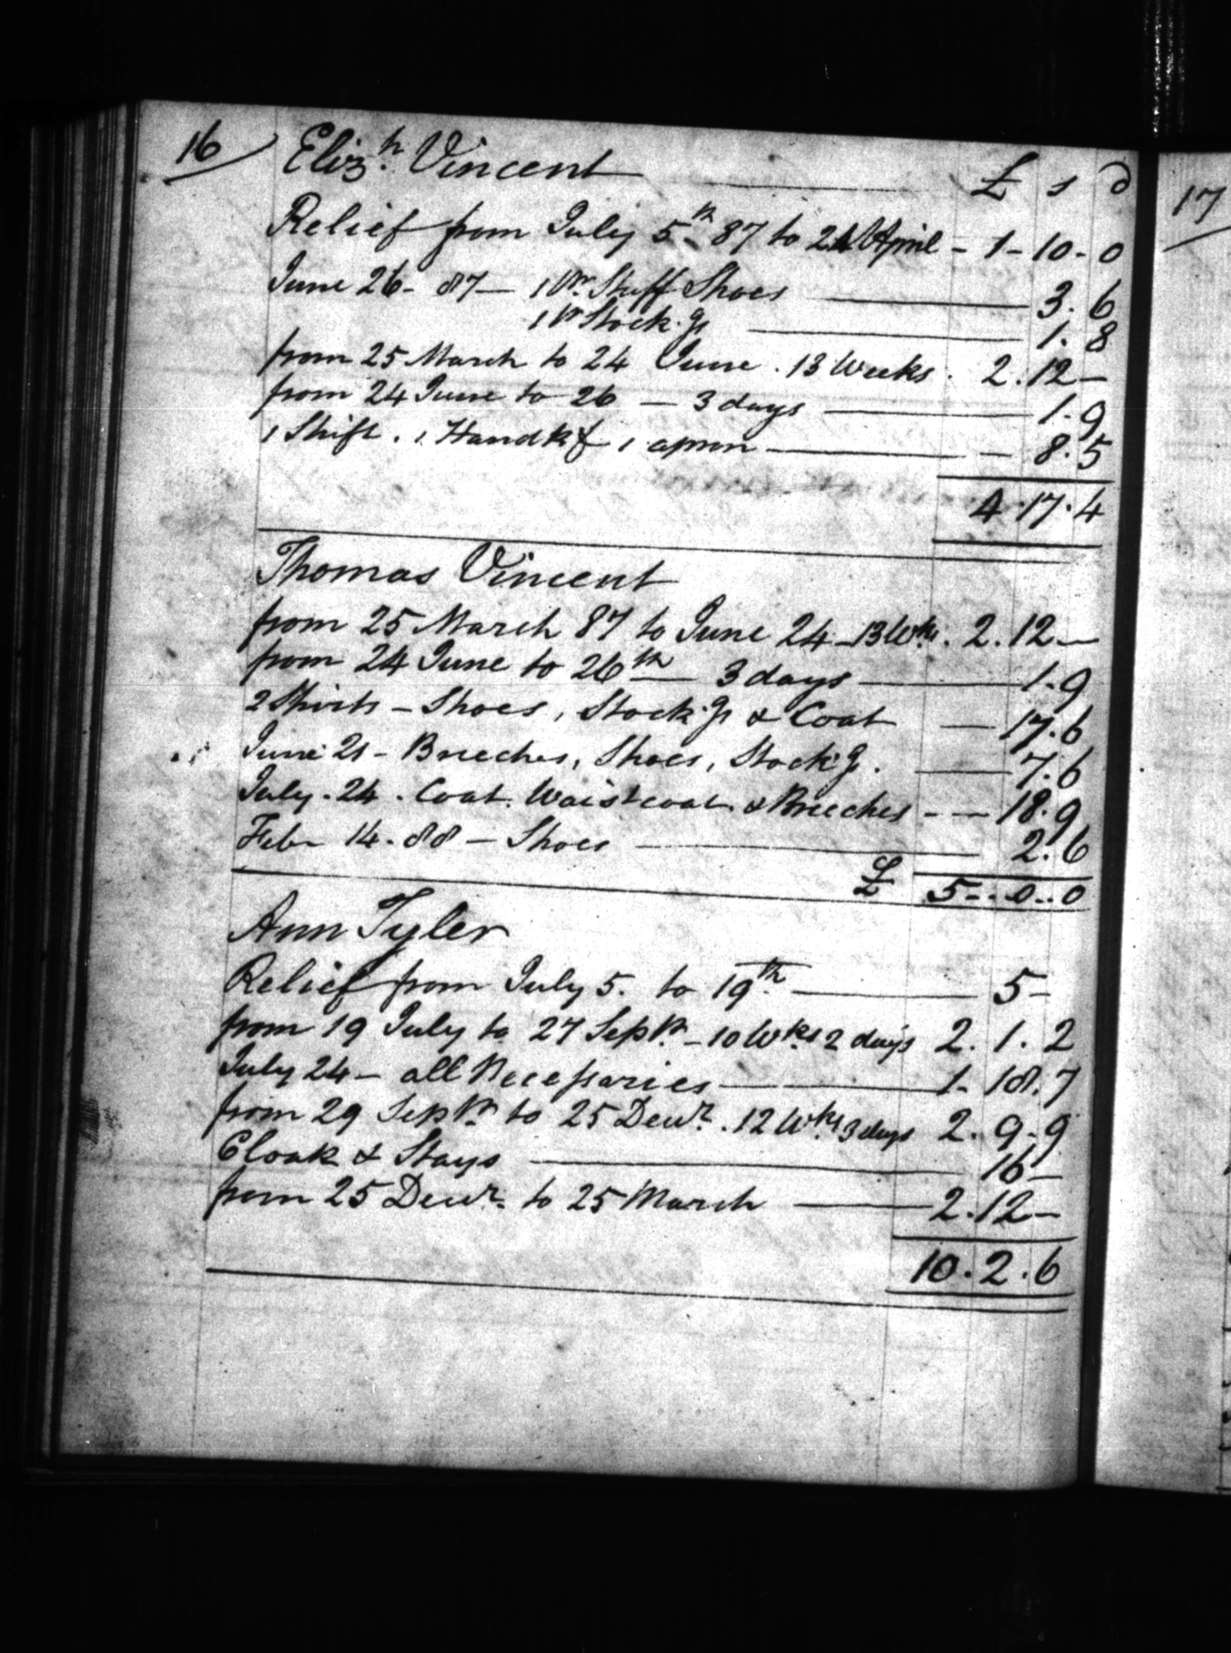 16 Eliz.h Vincent £ s d
Relief from July 5th 87 to 21 April - 1 - 10 - 0
June 26 - 87 - 1 Pr Stuff Shoes 3. 6
1 Pr Stock.gs 1. 8
from 25 March to 24 June . 13 Weeks . 2. 12 -
from 24 June to 26 - 3 days 1. 9
1 Shift . 1 Handkf 1 apron - 8. 5
4. 17. 4
Thomas Vincent
from 25 March 87 to June 24 - 13 Wks . 2. 12 -
from 24 June to 26th - 3 days 1. 9
2 Shirts - Shoes, Stock.gs & Coat - 17. 6
June 21 - Breeches, Shoes, Stock.g . 7. 6
July . 24 . Coat . Waistcoat & Breeches - - 18. 9
Febr 14 - 88 - Shoes 2. 6
£ 5 - . 0 - . 0
Ann Tyler
Relief from July 5. to 19th. 5 -
from 19 July to 27 Septr. - 10 Wks 2 days 2. 1. 2
July 24 - all Necessaries 1 - 18. 7
from 29 Septr. to 25 Decr. . 12 Wks 3 days 2. 9. 9
Cloak & Stays 16 -
from 25 Decr. to 25 March 2. 12 -
10. 2. 6
17